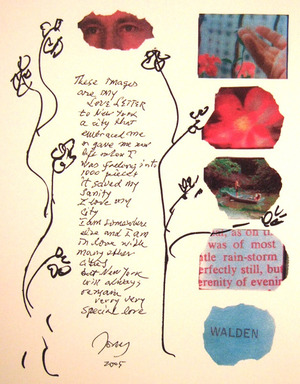 These Images
are my
LOVE LETTER
to New York
a city that
embraced me
& gave me new
life when I
was falling into
1000 pieces
it saved my
sanity
I love my
city
I am somewhere
else and I am
in love with
many other
cities
but New York
will always
remain
very very
special love
2005
as on
was of most
tle rain-storm
erfectly still, but
erenity of evenin
WALDEN